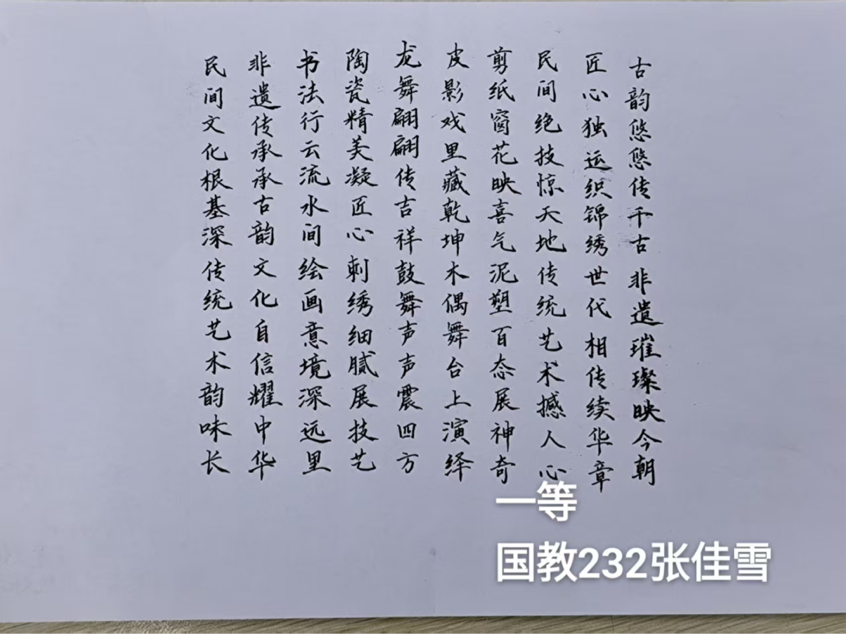 古韵悠悠传千古非遗璀璨映今朝
匠心独运织锦绣世代相传续华章
民间绝技惊天地传统艺术撼人心
剪纸窗花映喜气泥塑百态展神奇
皮影戏里藏乾坤木偶舞台上演绎
龙舞翩翩传吉祥鼓舞声声震四方
陶瓷精美凝匠心刺绣细腻展技艺
书法行云流水间绘画意境深远里
非遗传承承古韵文化自信耀中华
民间文化根基深传统艺术韵味长
一等
国教232张佳雪